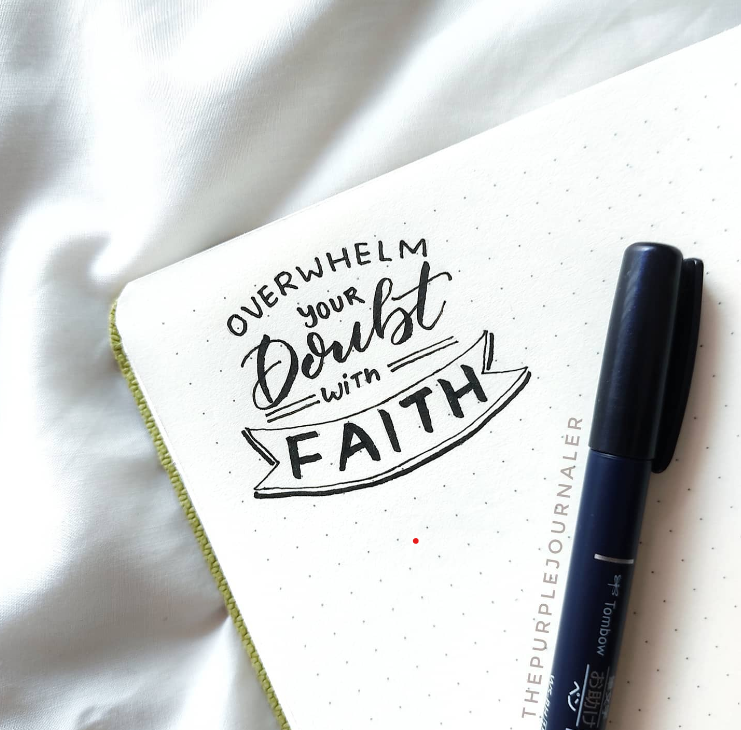 OVERWHELM
YOUR
Doubt
WITH
FAITH
THEPURPLEJOURNALER
Tombow